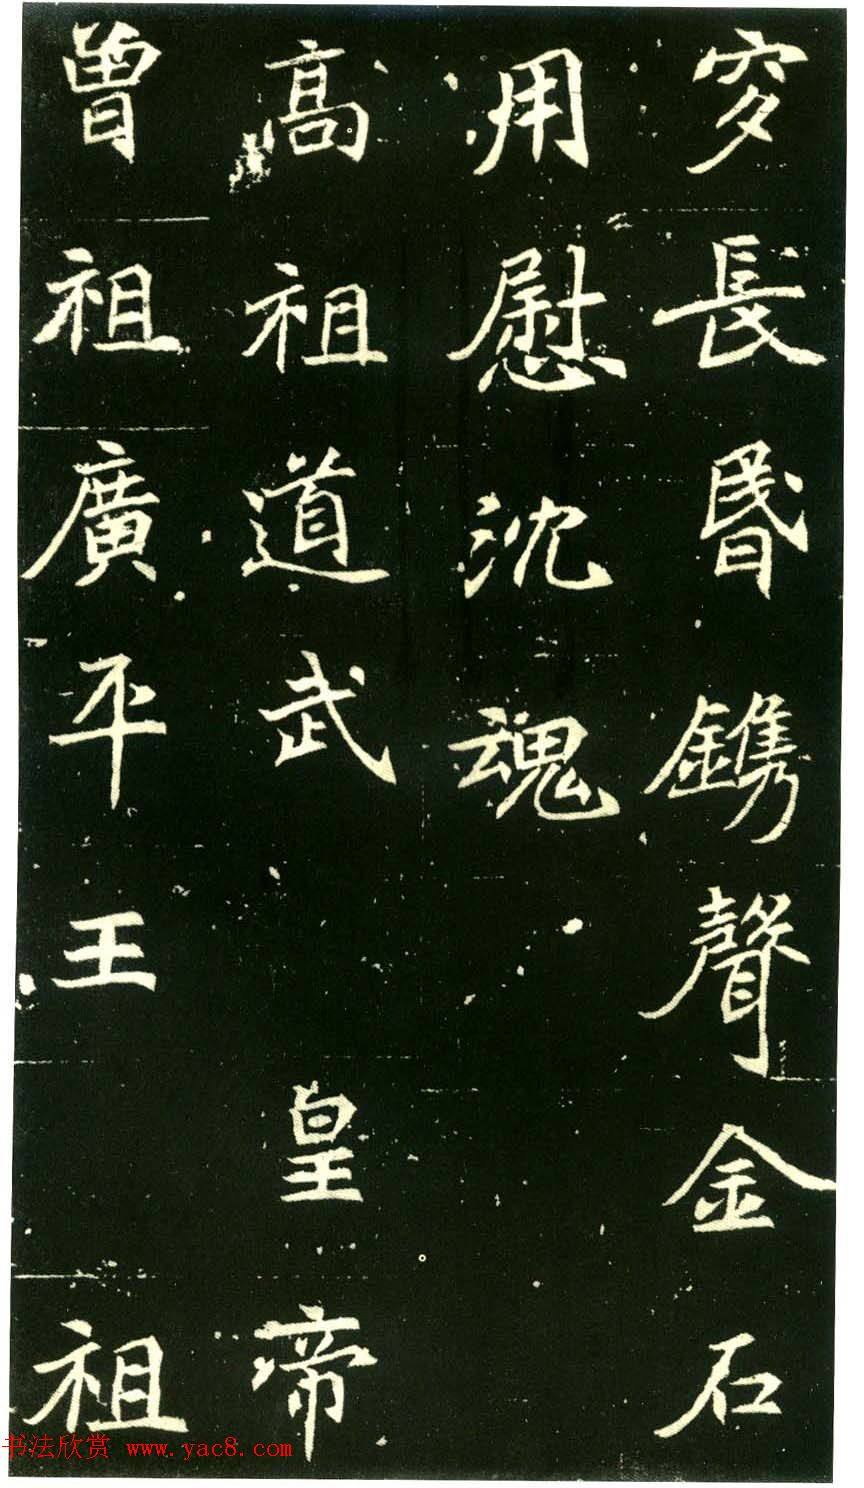 穸長昏鐫聲金石
用慰沈魂
高祖道武皇帝
曾祖廣平王祖
书法欣赏 www.yac8.com